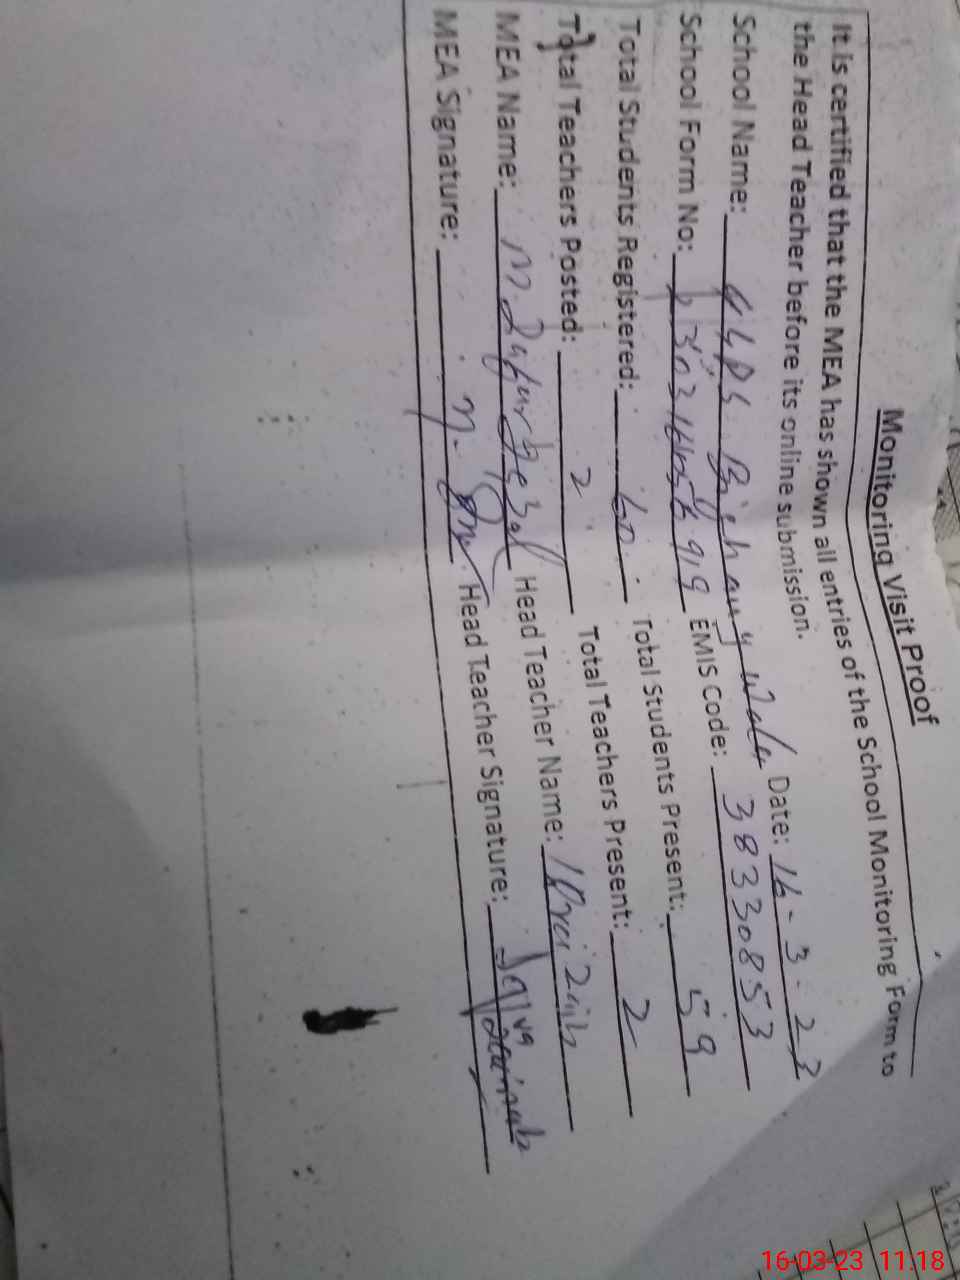 Monitoring Visit Proof
It is certified that the MEA has shown all entries of the School Monitoring Form to
the Head Teacher before its online submission.
School Name: GGPS Date: 16-3-23
School Form No: EMIS Code: 38330853
Total Students Registered: 60 Total Students Present: 59
Total Teachers Posted: 2 Total Teachers Present: 2
MEA Name: M. Head Teacher Name:
MEA Signature: M. Head Teacher Signature:
16-03-23 11:18